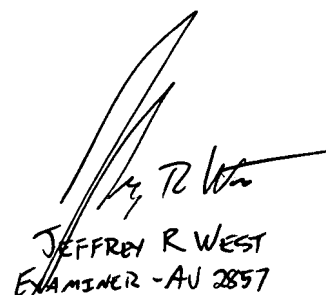 JEFFREY R WEST
EXAMINER - AU 2857